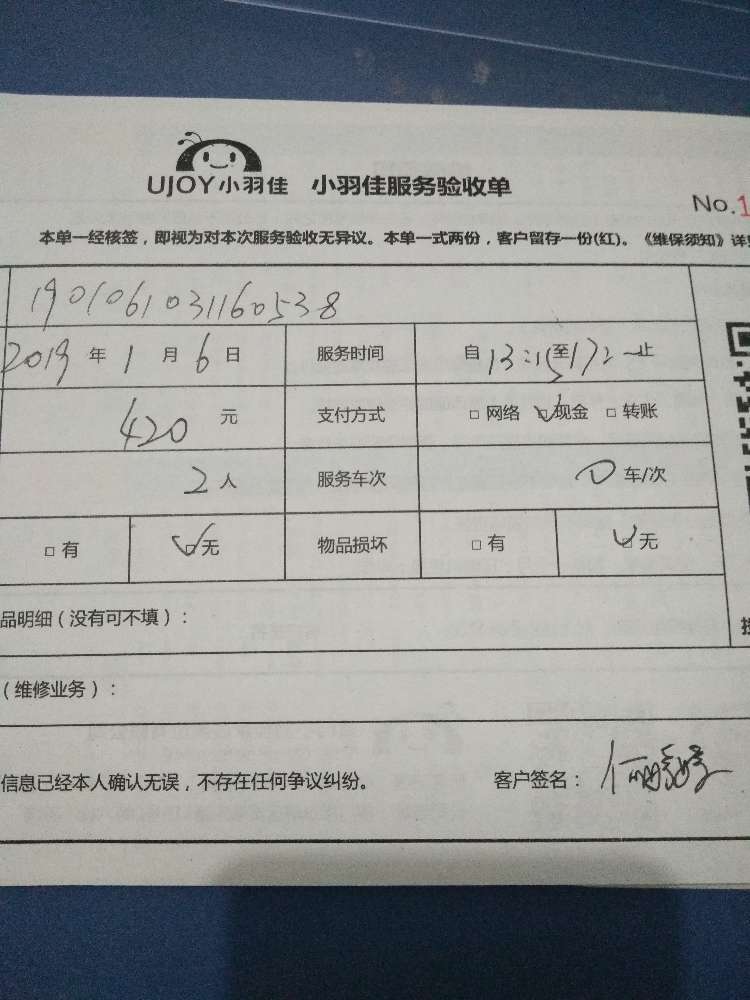 UJOY小羽佳 小羽佳服务验收单
No.1
本单一经核签，即视为对本次服务验收无异议。本单一式两份，客户留存一份(红)。《维保须知》详
190106103116 0538
2019年1月6日 服务时间 自13:15至17:一止
420元 支付方式 □网络 □现金 □转账
2人 服务车次 0车/次
□有 □无 物品损坏 □有 □无
品明细（没有可不填）：
（维修业务）：
信息已经本人确认无误，不存在任何争议纠纷。 客户签名：